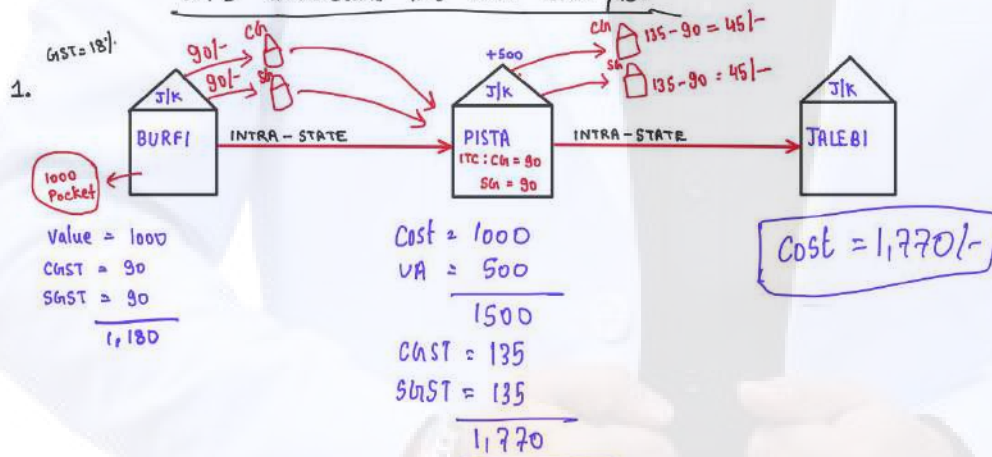 GST = 18%.
1.
90/-
CG
90/-
SG
J/K
BURFI
1000
Pocket
INTRA-STATE
+500
J/K
PISTA
ITC: CG = 90
SG = 90
CG
135-90 = 45/-
SG
135-90 = 45/-
INTRA-STATE
J/K
JALEBI
Value = 1000
CGST = 90
SGST = 90
1,180
Cost = 1000
VA = 500
1500
CGST = 135
SGST = 135
1,770
Cost = 1,770/-